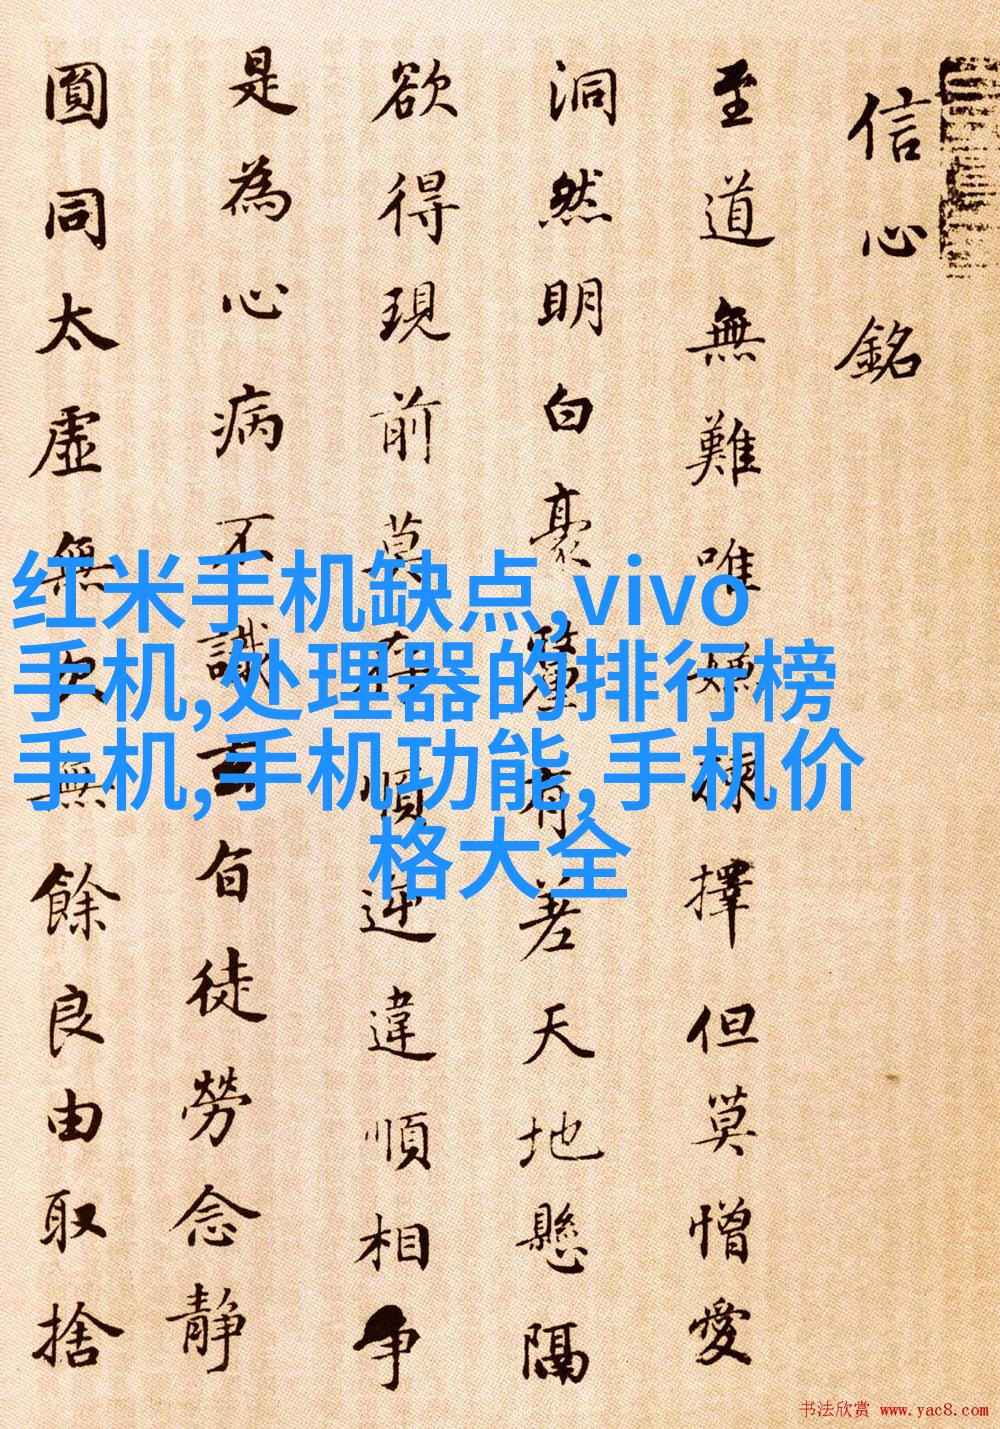 信心銘
至道無難唯嫌揀擇但莫憎愛
洞然明白豪釐有差天地懸隔
欲得現前莫存順逆違順相争
是為心病不識玄旨徒勞念静
圓同太虚無欠無餘良由取捨
红米手机缺点,vivo
手机,处理器的排行榜
手机,手机功能,手机价
格大全
书法欣赏 www.yac8.com